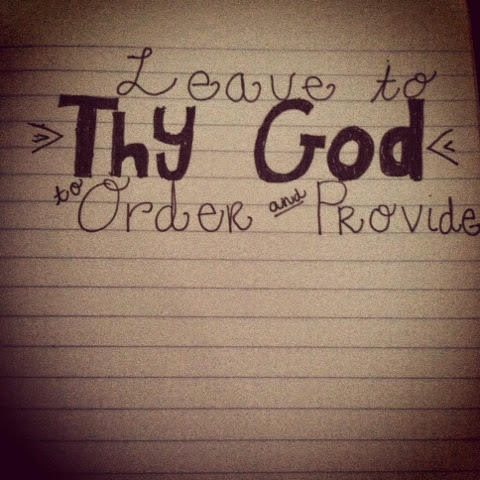 Leave to
Thy God
to Order and Provide